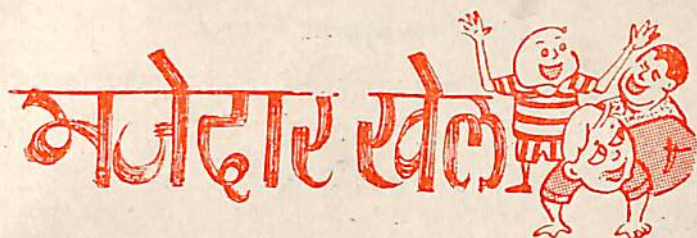 मजेदार खेल